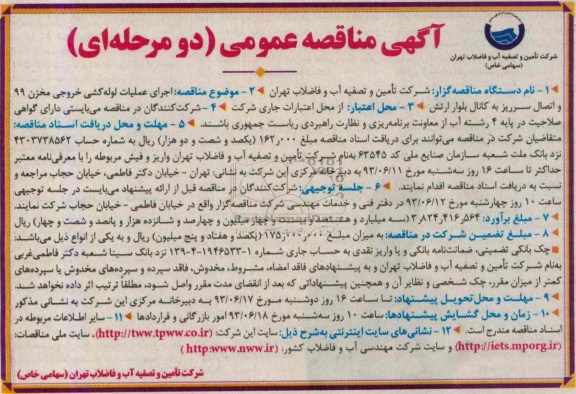 شرکت تأمین و تصفیه آب و فاضلاب تهران
(سهامی خاص)
آگهی مناقصه عمومی (دو مرحله‌ای)
۱- نام دستگاه مناقصه‌گزار: شرکت تأمین و تصفیه آب و فاضلاب تهران ۲- موضوع مناقصه: اجرای عملیات لوله‌کشی خروجی مخزن ۹۹
و اتصال سرریز به کانال بلوار ارتش ۳- محل اعتبار: از محل اعتبارات جاری شرکت ۴- شرکت‌کنندگان در مناقصه می‌بایستی دارای گواهی
صلاحیت در پایه ۴ رشته آب از معاونت برنامه‌ریزی و نظارت راهبردی ریاست جمهوری باشند. ۵- مهلت و محل دریافت اسناد مناقصه:
متقاضیان شرکت در مناقصه می‌توانند برای دریافت اسناد مناقصه مبلغ ۱۶۲٫۰۰۰ (یکصد و شصت و دو هزار) ریال به شماره حساب ۴۳۰۷۳۳۸۵۶۲
نزد بانک ملت شعبه سازمان صنایع ملی کد ۶۳۵۴۵ به‌نام شرکت تأمین و تصفیه آب و فاضلاب تهران واریز و فیش مربوطه را با معرفی‌نامه معتبر
حداکثر تا ساعت ۱۶ روز سه‌شنبه مورخ ۹۳/۰۶/۱۱ به دبیرخانه مرکزی این شرکت به نشانی: تهران - خیابان دکتر فاطمی، خیابان حجاب مراجعه و
نسبت به دریافت اسناد مناقصه اقدام نمایند. ۶- جلسه توجیهی: شرکت‌کنندگان در مناقصه قبل از ارائه پیشنهاد می‌بایست در جلسه توجیهی
ساعت ۱۰ روز چهارشنبه مورخ ۹۳/۰۶/۱۲ در دفتر فنی و خدمات مهندسی شرکت مناقصه‌گزار واقع در خیابان فاطمی - خیابان حجاب شرکت نمایند.
۷- مبلغ برآورد: ۳٫۸۲۴٫۴۱۶٫۵۶۴ (سه میلیارد و هشتصد و بیست و چهار میلیون و چهارصد و شانزده هزار و پانصد و شصت و چهار) ریال
۸- مبلغ تضمین شرکت در مناقصه: به میزان مبلغ ۱۷۵٫۰۰۰٫۰۰۰ (یکصد و هفتاد و پنج میلیون) ریال و به یکی از انواع ذیل می‌باشد:
چک بانکی تضمینی، ضمانت‌نامه بانکی و یا واریز نقدی به حساب جاری شماره ۱-۱۹۴۶۵۳۳-۴-۱۳۹ نزد بانک سینا شعبه دکتر فاطمی‌غربی
به‌نام شرکت تأمین و تصفیه آب و فاضلاب تهران و به پیشنهادهای فاقد امضاء، مشروط، مخدوش، فاقد سپرده و سپرده‌های مخدوش یا سپرده‌های
کمتر از میزان مقرر، چک شخصی و نظایر آن و همچنین پیشنهاداتی که بعد از انقضای مدت مقرر واصل شود، مطلقاً ترتیب اثر داده نخواهد شد.
۹- مهلت و محل تحویل پیشنهاد: تا ساعت ۱۶ روز دوشنبه مورخ ۹۳/۰۶/۱۷ به دبیرخانه مرکزی این شرکت به نشانی مذکور
۱۰- زمان و محل گشایش پیشنهادها: ساعت ۱۰ روز سه‌شنبه مورخ ۹۳/۰۶/۱۸ امور بازرگانی و قراردادها ۱۱- سایر اطلاعات مربوطه در
اسناد مناقصه مندرج است. ۱۲- نشانی‌های سایت اینترنتی به‌شرح ذیل: سایت این شرکت: (http://tww.tpww.co.ir)، سایت ملی مناقصات:
(http://iets.mporg.ir) و سایت شرکت مهندسی آب و فاضلاب کشور: (http:www.nww.ir)
شرکت تأمین و تصفیه آب و فاضلاب تهران (سهامی خاص)